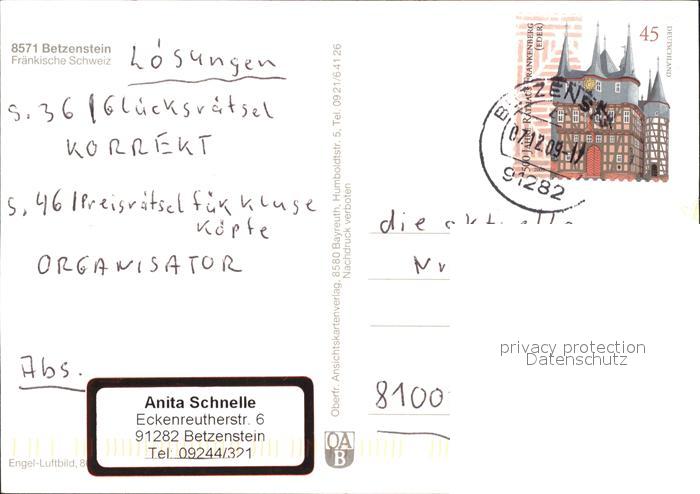 8571 Betzenstein
Fränkische Schweiz
Lösungen
S. 36 / Glücksrätsel
KORREKT
S. 46 / Preisrätsel für kluge
Köpfe
ORGANISATOR
Abs.
Anita Schnelle
Eckenreutherstr. 6
91282 Betzenstein
Tel: 09244/321
Engel-Luftbild, 8
Oberfr. Ansichtskartenverlag, 8580 Bayreuth, Humboldtstr. 5, Tel. 0921/64126
Nachdruck verboten
OA
B
500 JAHRE RATHAUS FRANKENBERG
(EDER)
45
DEUTSCHLAND
BETZENSTEIN
91282
die aktuelle
Nr
8100
privacy protection
Datenschutz